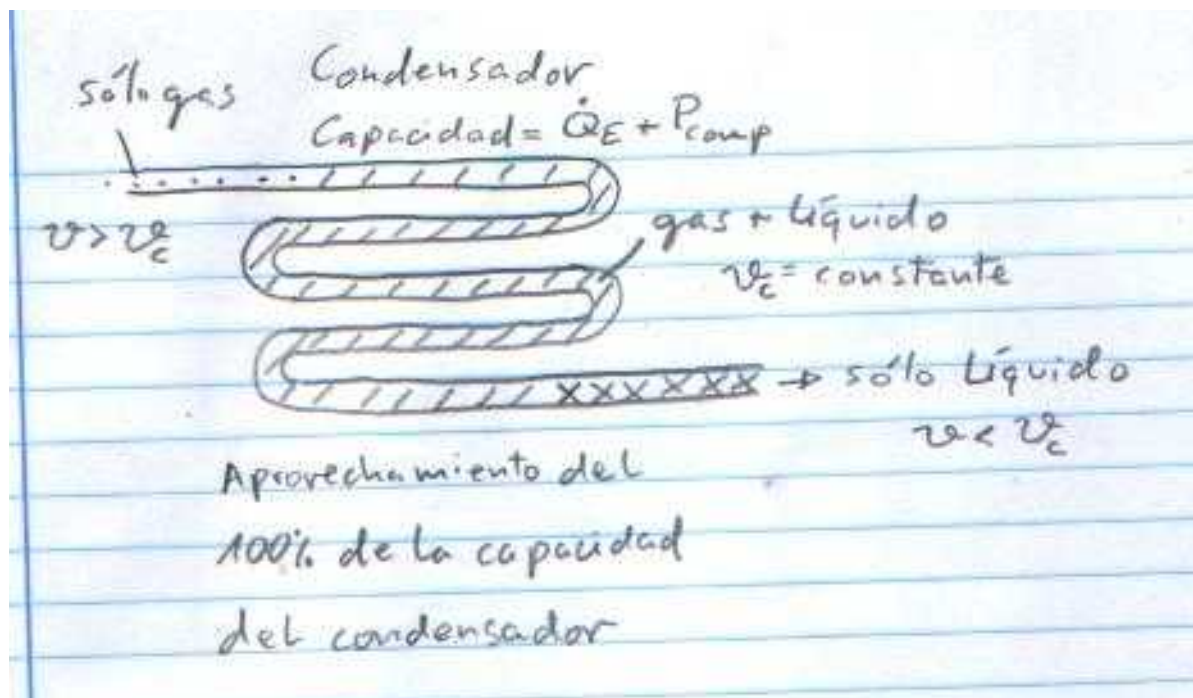 Condensador
sólo gas
Capacidad = Q̇E + Pcomp
ϑ > ϑc
gas + Líquido
ϑc = constante
xxxxxx → sólo Líquido
ϑ < ϑc
Aprovechamiento del
100% de la capacidad
del condensador